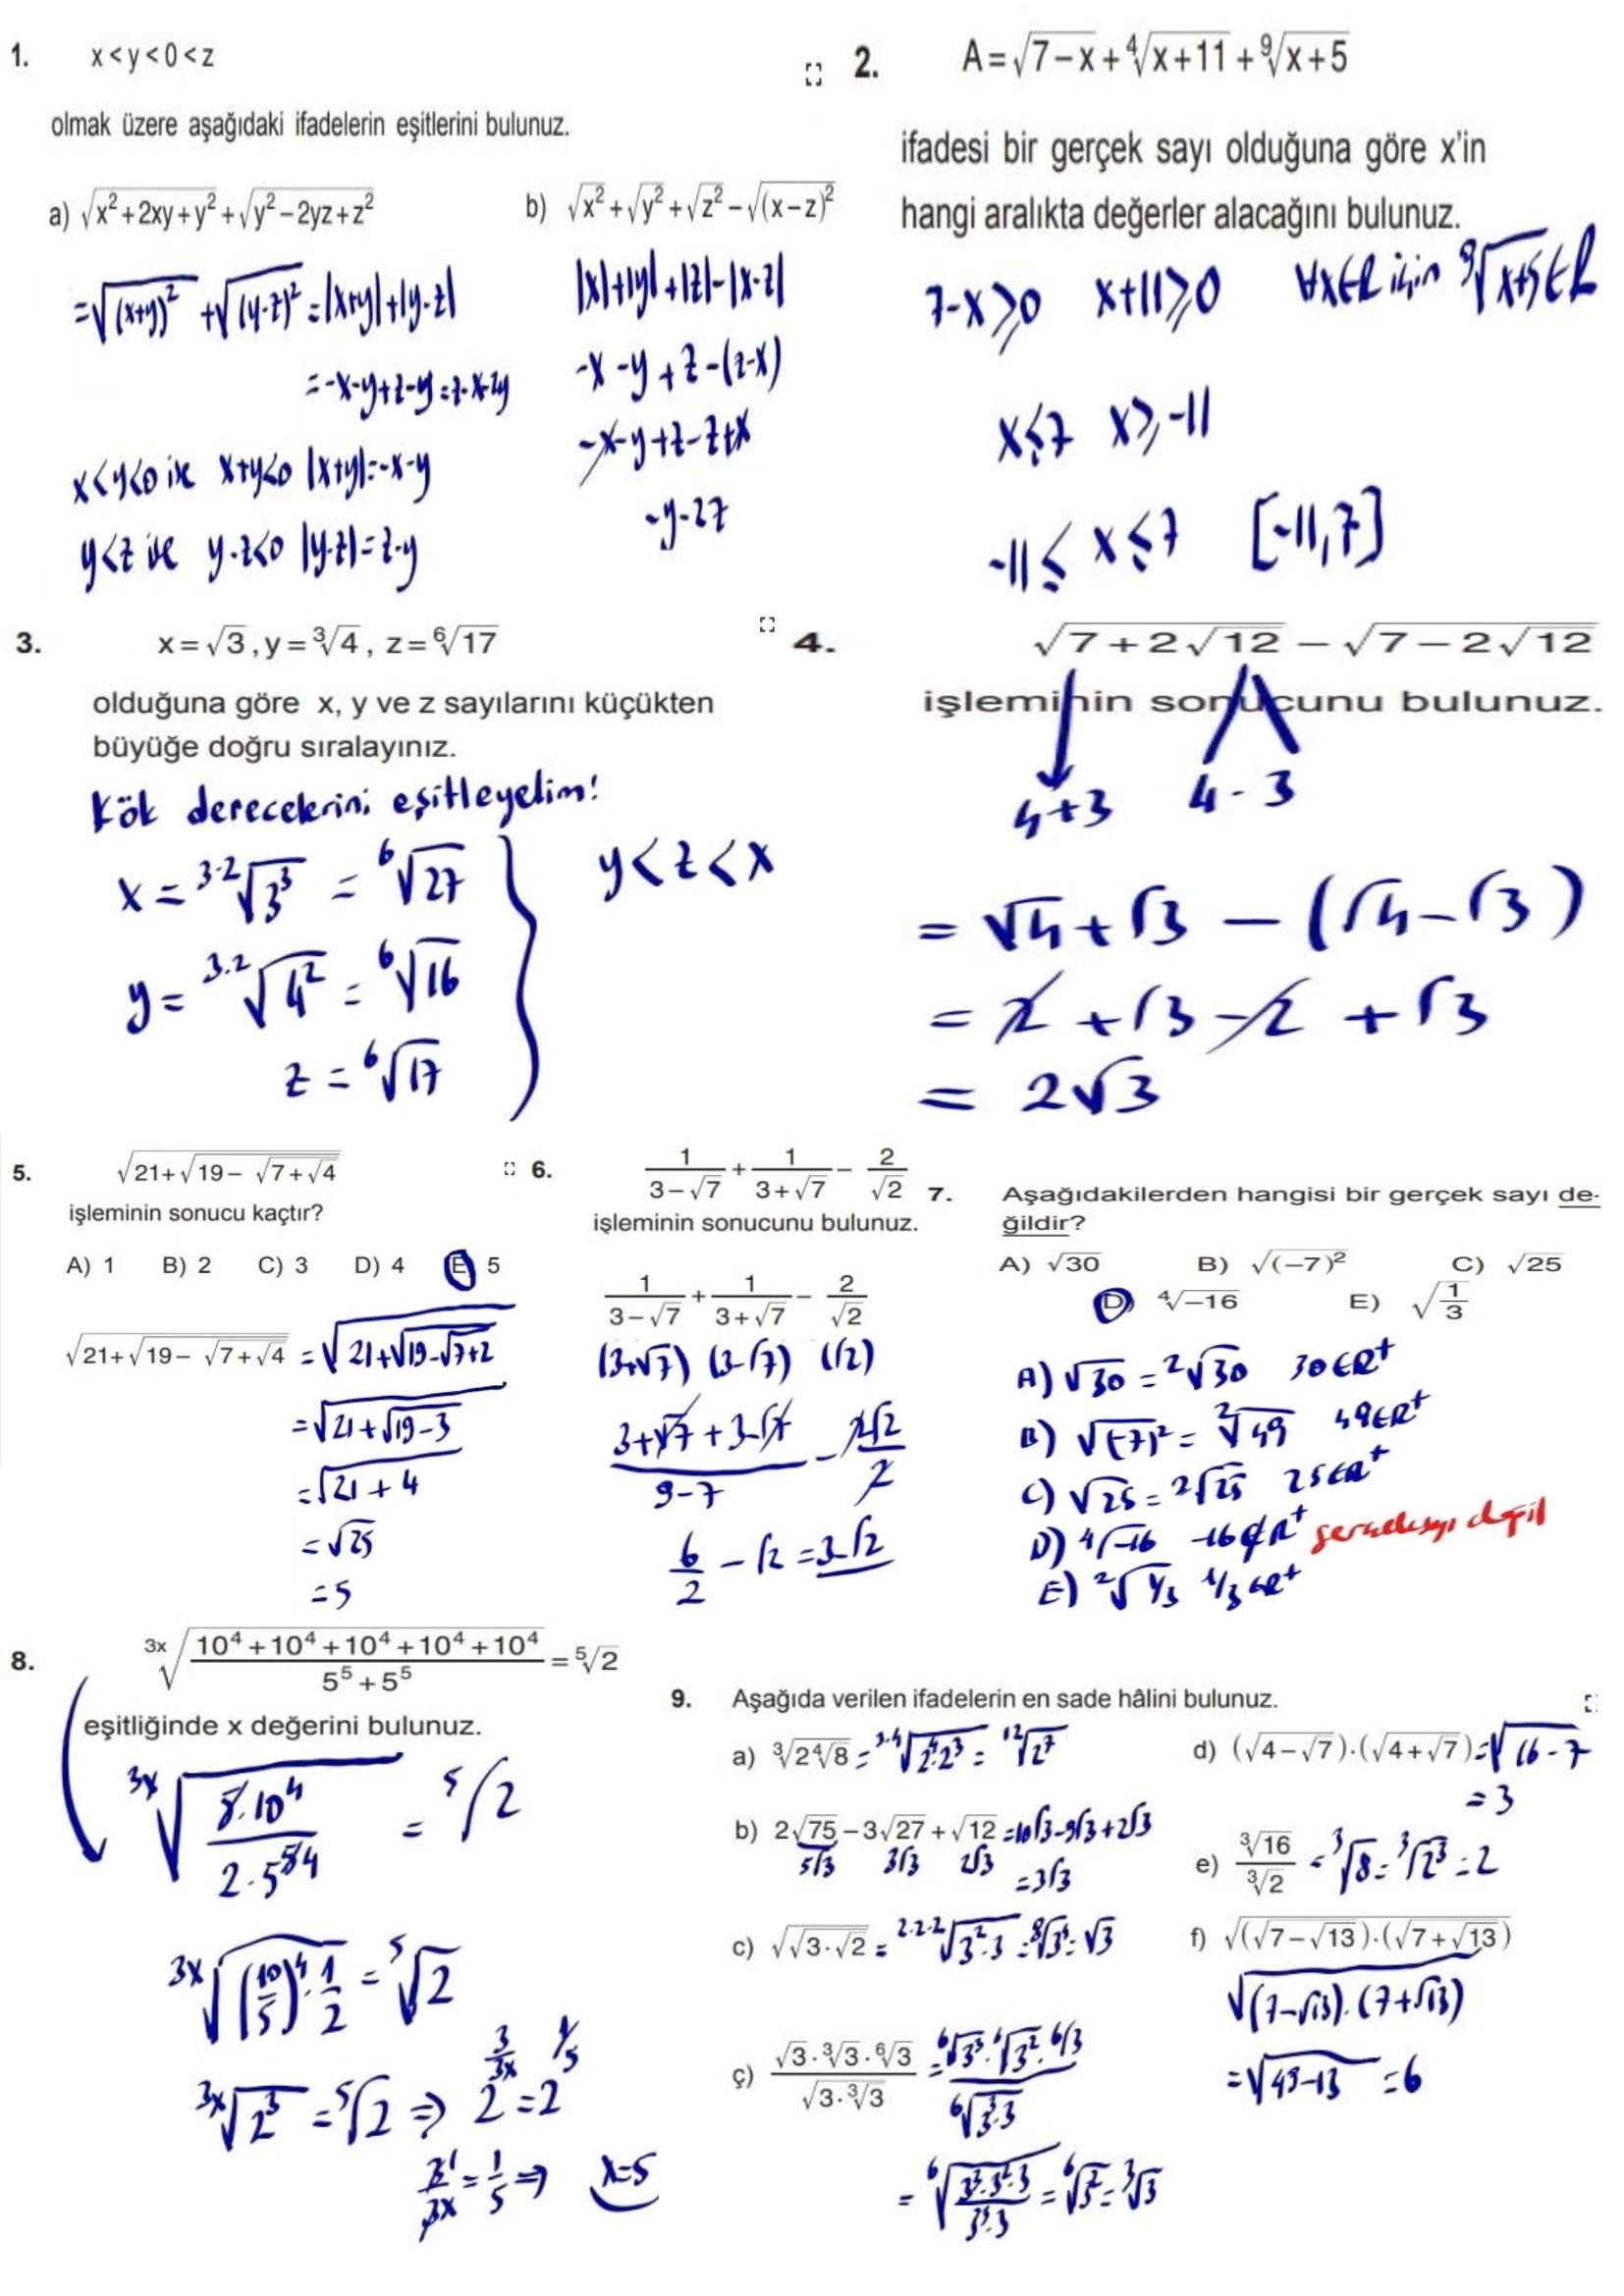 1. x<y<0<z
olmak üzere aşağıdaki ifadelerin eşitlerini bulunuz.
a) √(x²+2xy+y²) + √(y²−2yz+z²)
=√(x+y)² + √(y-z)² = |x+y|+|y-z|
= -x-y+z-y = z-x-2y
x<y<0 ise x+y<0 |x+y|=-x-y
y<z ise y-z<0 |y-z|=z-y
b) √x² + √y² + √z² − √(x−z)²
|x|+|y|+|z|-|x-z|
-x-y+z-(z-x)
-x-y+z-z+x
-y-2z
2. A=√(7−x) + ⁴√(x+11) + ⁹√(x+5)
ifadesi bir gerçek sayı olduğuna göre x'in
hangi aralıkta değerler alacağını bulunuz.
7-x≥0 x+11≥0 ∀x∈R için ⁹√(x+5)∈R
x≤7 x≥-11
-11≤x≤7 [-11,7]
3. x=√3, y=³√4, z=⁶√17
olduğuna göre x, y ve z sayılarını küçükten
büyüğe doğru sıralayınız.
Kök derecelerini eşitleyelim!
x = ³·²√3³ = ⁶√27
y = ³·²√4² = ⁶√16
z = ⁶√17
y<z<x
4. √(7+2√12) − √(7−2√12)
işleminin sonucunu bulunuz.
4+3 4-3
= √4+√3 − (√4−√3)
= 2+√3−2+√3
= 2√3
5. √(21+√(19−√(7+√4)))
işleminin sonucu kaçtır?
A) 1 B) 2 C) 3 D) 4 E) 5
√(21+√(19−√(7+√4))) = √(21+√(19-√(7+2)))
=√(21+√(19-3))
=√(21+4)
=√25
=5
6. 1/(3−√7) + 1/(3+√7) − 2/√2
işleminin sonucunu bulunuz.
1/(3−√7) + 1/(3+√7) − 2/√2
(3+√7) (3-√7) (√2)
(3+√7+3-√7)/(9-7) − 2√2/2
6/2 − √2 = 3-√2
7. Aşağıdakilerden hangisi bir gerçek sayı de-
ğildir?
A) √30 B) √(−7)² C) √25
D) ⁴√−16 E) √(1/3)
A) √30 = ²√30 30∈R⁺
B) √(-7)² = ²√49 49∈R⁺
C) √25 = ²√25 25∈R⁺
D) ⁴√-16 -16∉R⁺ gerçek sayı değil
E) ²√1/3 1/3∈R⁺
8. ³ˣ√((10⁴+10⁴+10⁴+10⁴+10⁴)/(5⁵+5⁵)) = ⁵√2
eşitliğinde x değerini bulunuz.
³ˣ√(5·10⁴/(2·5⁵ ⁴)) = ⁵√2
³ˣ√((10/5)⁴·1/2) = ⁵√2
³ˣ√2³ = ⁵√2 ⇒ 2^(3/3x) = 2^(1/5)
3/3x = 1/5 ⇒ x=5
9. Aşağıda verilen ifadelerin en sade hâlini bulunuz.
a) ³√(2⁴√8) = ³·⁴√(2⁴·2³) = ¹²√2⁷
b) 2√75 − 3√27 + √12 = 10√3-9√3+2√3
5√3 3√3 2√3
=3√3
c) √√(3·√2) = ²·²·²√(3²·3) = ⁸√3⁴ = √3
ç) (√3·³√3·⁶√3)/√(3·³√3) = (⁶√3³·⁶√3²·⁶√3)/⁶√(3³·3)
= ⁶√(3³·3²·3/(3³·3)) = ⁶√3² = ³√3
d) (√(4−√7))·(√(4+√7)) = √(16-7)
=3
e) ³√16/³√2 = ³√8 = ³√2³ = 2
f) √((√7−√13)·(√7+√13))
√((7-√13)·(7+√13))
=√(49-13) = 6